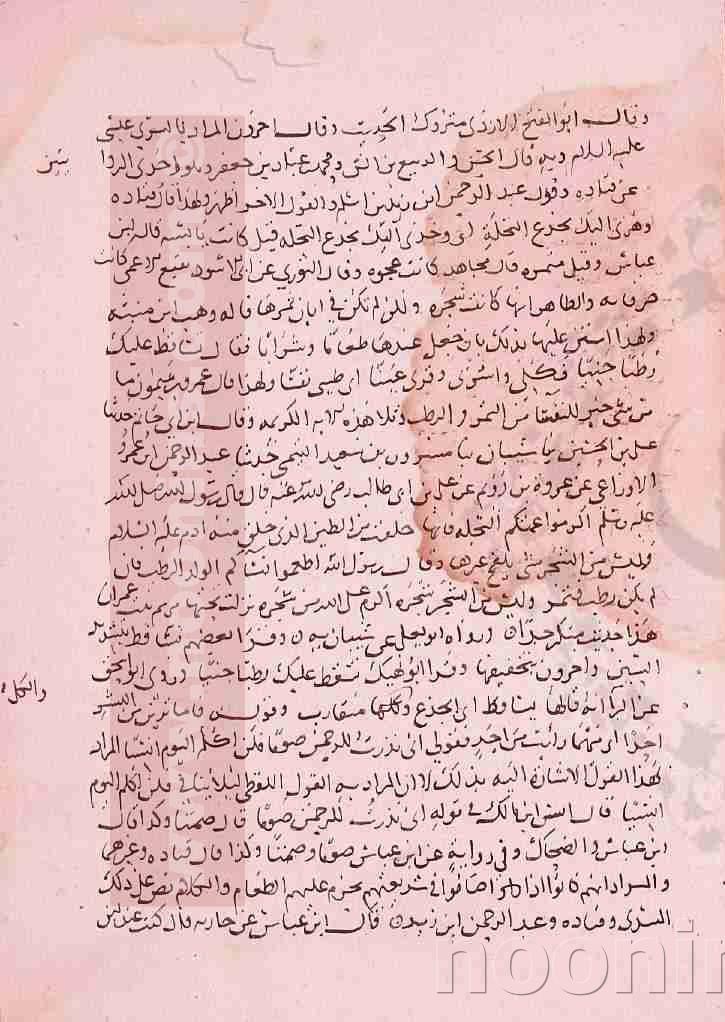 وقال ابو الفتح الازدي متروك الحديث وقال اخرون المراد بالسري عيسى
عليه السلام وبه قال الحسن والربيع بن انس ومحمد بن عباد بن جعفر وهو احدى الروا يتين
عن قتاده وقول عبد الرحمن ابن زيد بن اسلم والقول الاول اظهر ولهذا قال
وهزي اليك بجذع النخلة اي وخذي اليك بجذع النخله قيل كانت يابسه قاله ابن
عباس وقيل مثمره قال مجاهد كانت عجوه وقال الثوري عن ابي داود نفيع الاعمى كانت
صرفانه والظاهر انها كانت شجره ولكن لم تكن في ابان ثمرها قاله وهب ابن منبه
ولهذا امتن عليها بذلك بان جعل عندها طعاما وشرابا فقال تساقط عليك
رطبا جنيا فكلي واشربي وقري عينا اي طيبي نفسا ولهذا قال عمرو بن ميمون ما
من شي خير للنفسا من التمر والرطب وتلا هذه الايه الكريمه وقال ابن ابي حاتم حدثنا
علي بن الحسين نا شيبان نا مسرور بن سعيد التميمي حدثنا عبد الرحمن ابن عمرو
الاوزاعي عن عروة بن رويم عن علي بن ابي طالب رضي الله عنه قال قال رسول الله صلى الله
عليه وسلم اكرموا عمتكم النخله فانها خلقت من الطين الذي خلق منه ادم عليه السلام
وليس من الشجر شي يلقح غيرها وقال رسول الله اطعموا نساكم الولد الرطب فان
لم يكن رطب فتمر وليس من الشجر شجره اكرم على الله من شجره نزلت تحتها مريم بنت عمران
هذا حديث منكر جدا ورواه ابو يعلى عن شيبان به وقرا بعضهم تساقط بتشديد
السين واخرون بتخفيفها وقرا ابو نهيك تسقط عليك رطبا جنيا وروى ابو اسحق
عن البرا انه قراها يساقط اي الجذع والكل متقارب وقوله فاما ترين من البشر
احدا اي مهما رايت من احد فقولي اني نذرت للرحمن صوما فلن اكلم اليوم انسيا المراد
بهذا القول الاشارة اليه بذلك لا ان المراد به القول اللفظي ليلا ينافي فلن اكلم اليوم
انسيا قال انس ابن مالك في قوله اني نذرت للرحمن صوما قال صمتا وكذا قال
ابن عباس والضحاك وفي رواية عن ابن عباس صوما وصمتا وكذا قال قتاده وغيرهما
والمراد انهم كانوا اذا صاموا في شريعتهم يحرم عليهم الطعام والكلام نص على ذلك
السدي وقتاده وعبد الرحمن ابن زيد وقال ابن عباس عن حارثه قال كنت عند ابن
والكل
noonin